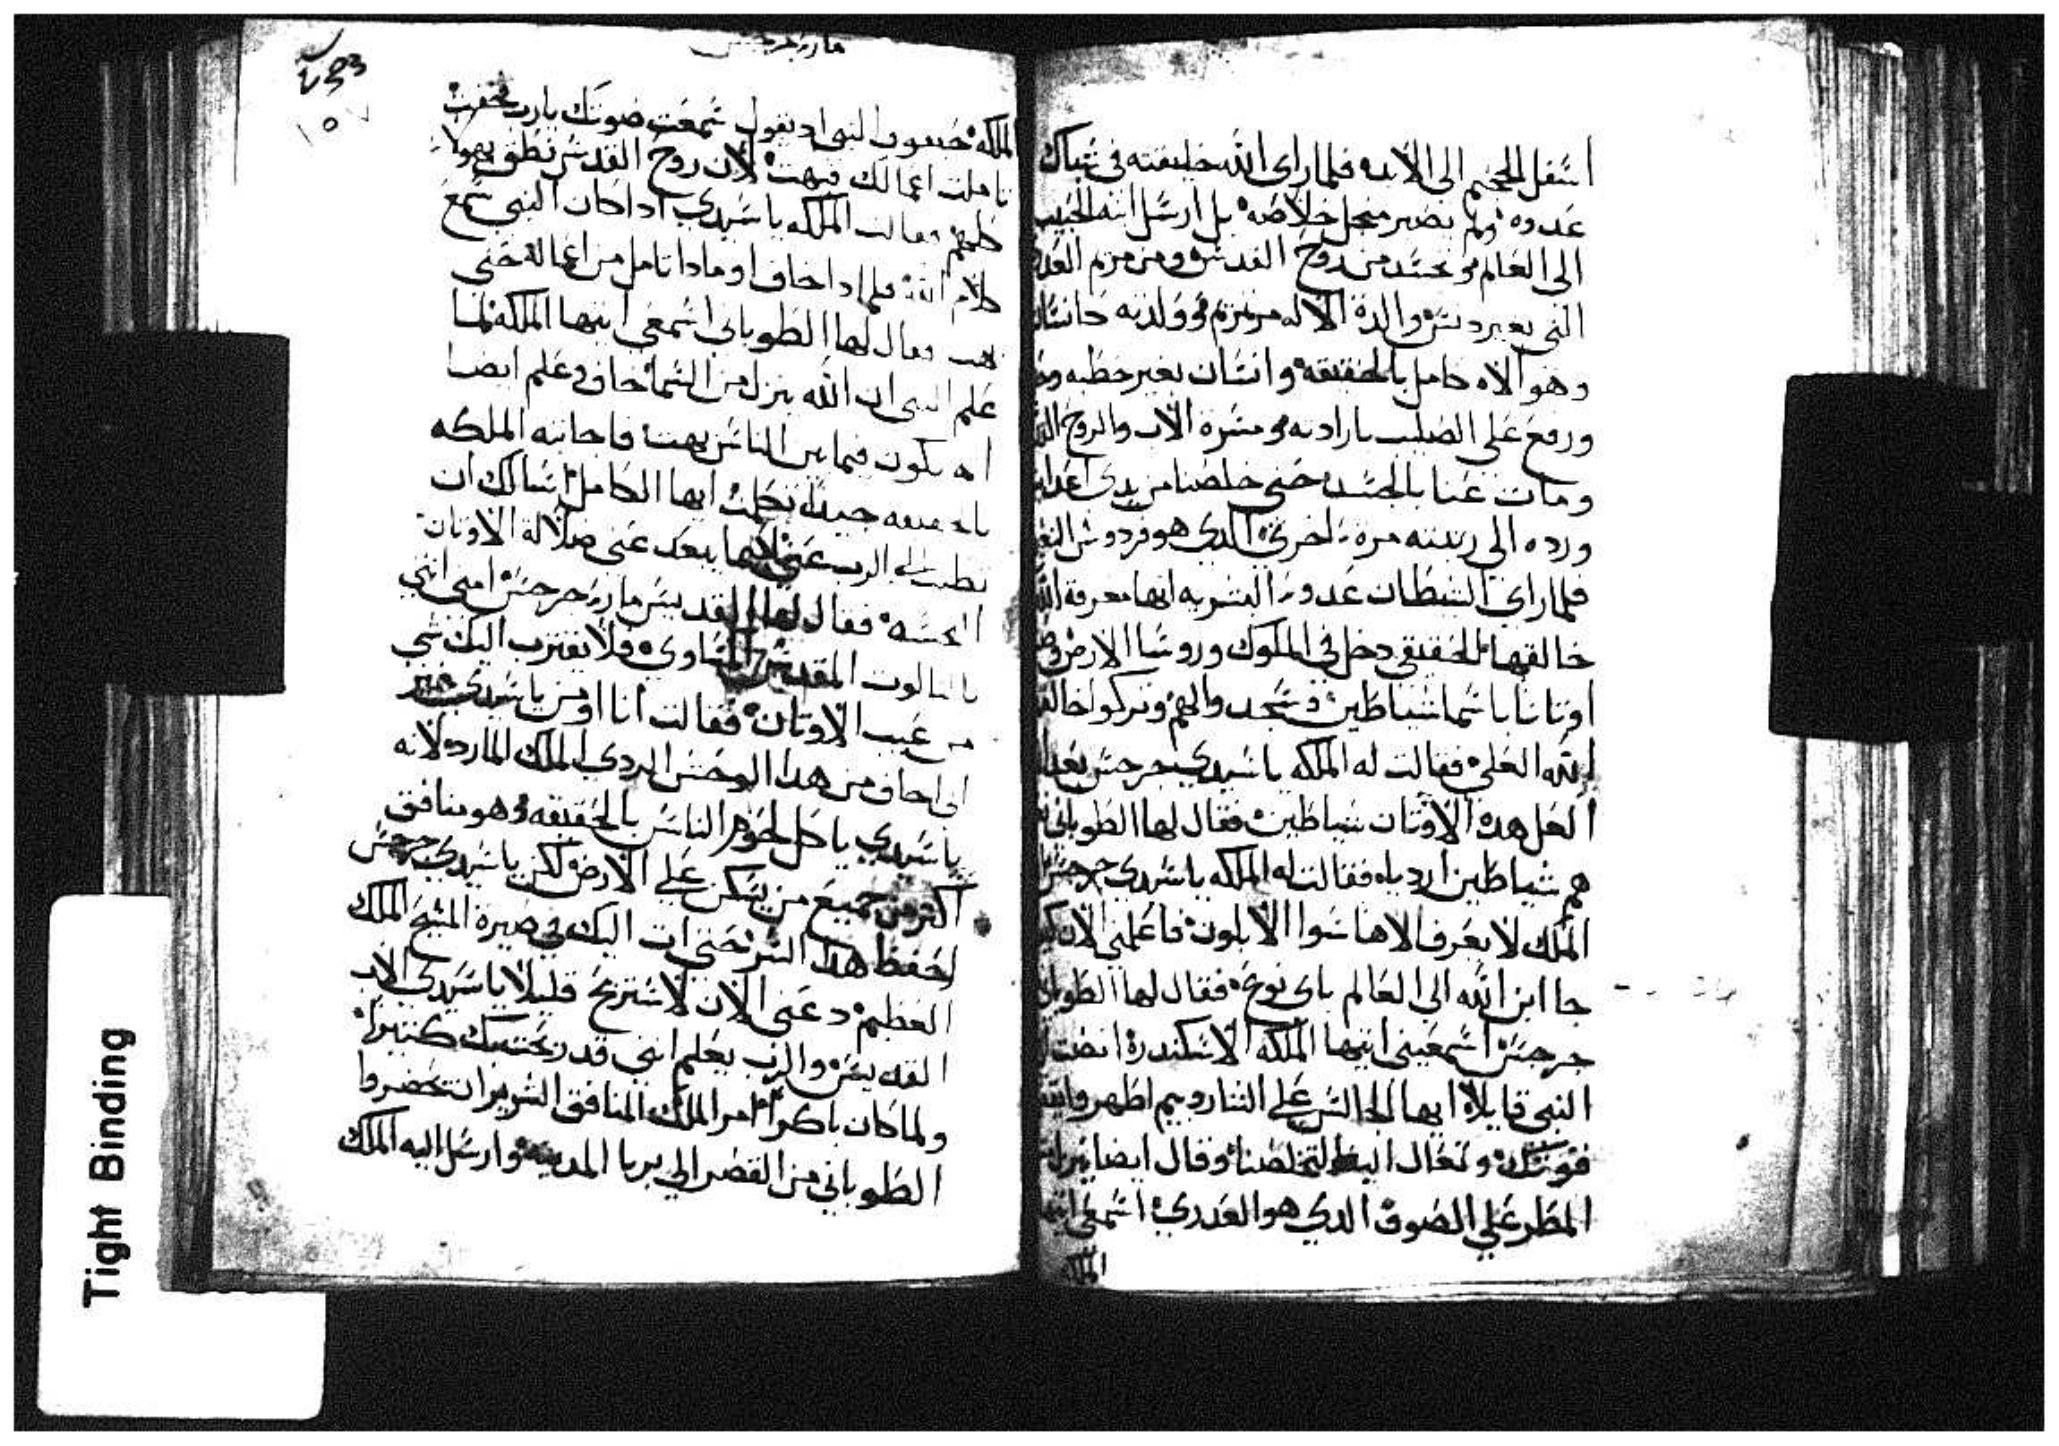 اسفل الجحيم الى الابد فلما راى الله خليقته فى شباك
عدوه ولم يصبر منجل خلاصه بل ارسل ابنه الحبيب
الى العالم وتجسد من روح القدس ومن مريم العدرى
التى بغير دنس والدة الاله مرتمريم وولدته كانسان
وهو الاه كامل بالحقيقه وانسان بغير خطيه
ورفع على الصليب بارادته ومسرة الاب والروح
ومات عنا بالجسد حتى خلصنا من يدى اعداينا
ورده الى رتبته مرة اخرى الدي هو فردوس النعيم
فلما راى الشيطان عدو البشريه انها معرفة الله
خالقها الحقيقي دخل فى الملوك وروسا الارض
اوتانا باسما شياطين وسجدوا لهم وتركوا خالقهم
الله العلي فقالت له الملكه ياسيدي جرجس
العل هده الاوتان شياطين فقال لها الطوباني
هم شياطين اردياه فقالت له الملكه ياسيدي جرجس
الملك لا يعرف الاها سوا الابلون فاعلمني الان كيف
جا ابن الله الى العالم باى نوع فقال لها الطوباني
جرجس اسمعينى ايتها الملكه الاسكندرة انصت
النبي قايلا ايها الجالس على الشاروبيم اظهر
قوتك وتعال الينا لتخلصنا وقال ايضا ينزل
المطر على الصوف الدي هو العدري اسمعى ايتها
الملكه
مارى جرجس
٢٥٣
١٥٧
الملكه حبقوق النبى اد يقول سمعت صوتك يارب فخفت
تاملت اعمالك فبهت لان روح القدس نطق بهولا
كلهم فقالت الملكه ياسيدي ادا كان النبى سمع
كلام الله فلمادا خاف او مادا تامل من اعماله حتى
بهت فقال لها الطوبانى اسمعى ايتها الملكه لما
علم النبى ان الله ينزل من السما خاف وعلم ايضا
انه يكون فيما بين الناس بهت فاجابته الملكه
بالحقيقه جيدا تكلمت ايها الكامل اسالك ان
تطلب الى الرب عنى لكيما يبعد عنى ضلالة الاوتان
النجسه فقال لها القديس مارى جرجس امنى انتي
بالتالوت المقدس المساوي ولا يقترب اليك شى
من عيب الاوتان فقالت انا اومن ياسيدي غير
انى اخاف من هدا الوحش الردى الملك المارد لانه
ياسيدي ياكل لحوم الناس بالحقيقه وهو منافق
اكتر من جميع من يسكن على الارض لكن ياسيدي جرجس
احفظ هدا السر حتى ات اليك في صيرة المسيح الملك
العظيم دعنى الان لاستريح قليلا ياسيدى الاب
القديس والرب يعلم اننى قد رتحننك كتيرا
ولما كان باكرا امر الملك المنافق الشرير ان تحضروا
الطوباني من القصر الى بربا المدينه وارسل اليه الملك
Tight Binding